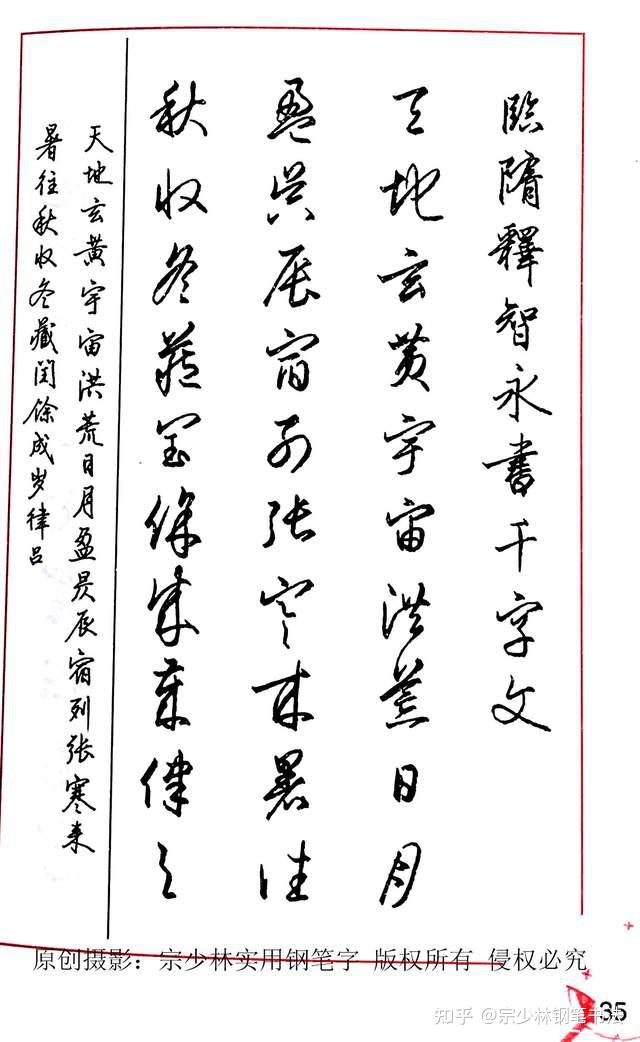 臨隋釋智永書千字文
天地玄黄宇宙洪荒日月
盈昃辰宿列張寒來暑往
秋收冬藏閏餘成歲律吕
天地玄黄宇宙洪荒日月盈昃辰宿列张寒来
暑往秋收冬藏闰馀成岁律吕
原创摄影：宗少林实用钢笔字 版权所有 侵权必究
35
知乎 @宗少林钢笔书法